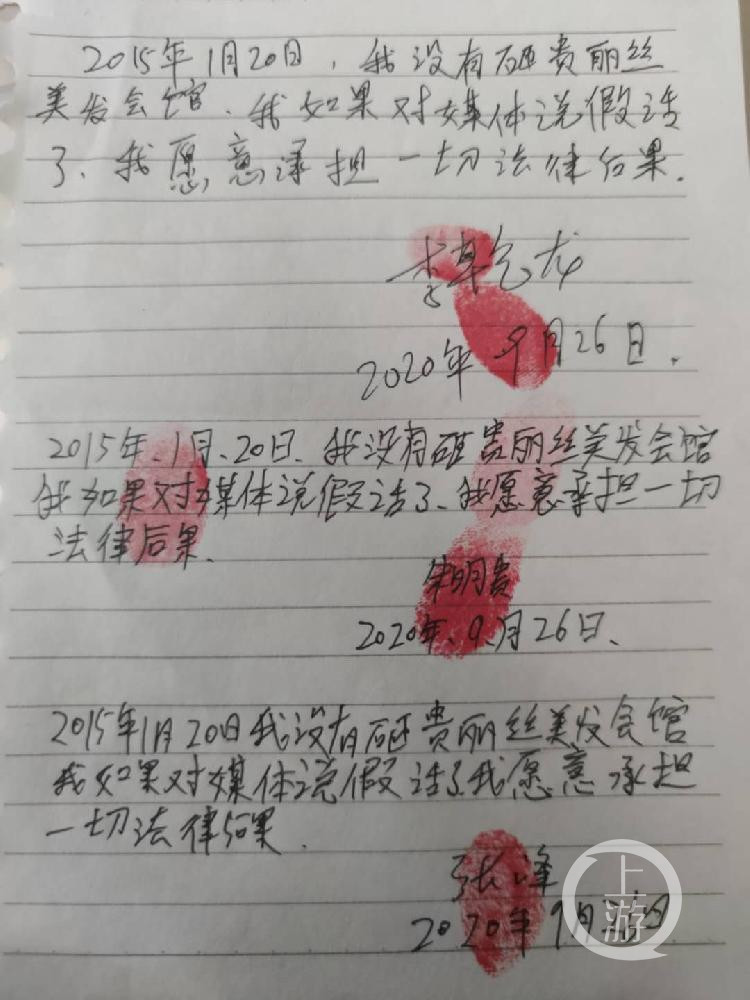 2015年1月20日，我没有砸贵丽丝
美发会馆．我如果对媒体说假话
了、我愿意承担一切法律后果．
龙
2020年9月26日．
2015年、1月、20日、我没有砸贵丽丝美发会馆
我如果对媒体说假话了、我愿意承担一切
法律后果、
朱明贵
2020年、9、月26日、
2015年1月20日我没有砸贵丽丝美发会馆
我如果对媒体说假话了我愿意承担
一切法律后果．
张峰
2020年9月26日
上游